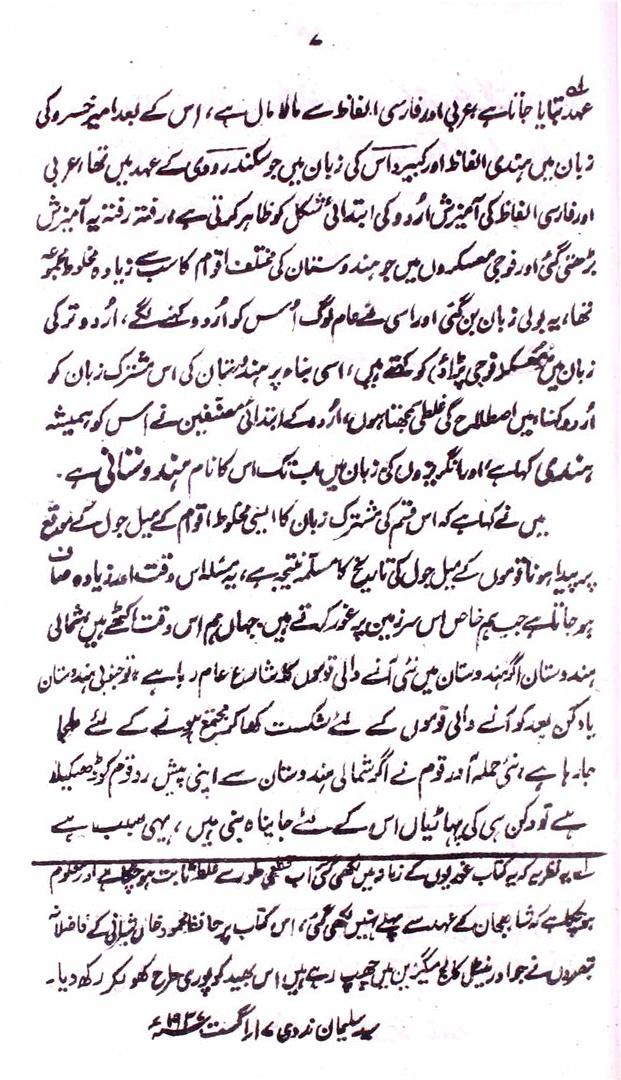 ۷
عہد بتایا جاتا ہے، عربی اور فارسی الفاظ سے مالا مال ہے، اس کے بعد امیر خسرو کی
زبان میں ہندی الفاظ اور کبیر داس کی زبان میں جو سکندر لودی کے عہد میں تھا، عربی
اور فارسی الفاظ کی آمیزش اُردو کی ابتدائی شکل کو ظاہر کرتی ہے، رفتہ رفتہ یہ آمیزش
بڑھتی گئی اور فوجی معسکروں میں جو ہندوستان کی مختلف اقوام کا سب سے زیادہ مخلوط مجموعہ
تھا، یہ بولی زبان بن گئی اور اسی لئے عام لوگ اُس کو اُردو کہنے لگے، اُردو ترکی
زبان میں معسکر و فوجی پڑاؤ کو کہتے ہیں، اسی بناء پر ہندوستان کی اس مشترک زبان کو
اُردو کہنا میں اصطلاح کی غلطی سمجھتا ہوں، اُردو کے ابتدائی مصنفین نے اس کو ہمیشہ
ہندی کہا ہے اور انگریزوں کی زبان میں اب تک اس کا نام ہندوستانی ہے۔
میں نے کہا ہے کہ اس قسم کی مشترک زبان کا ایسی مخلوط اقوام کے میل جول کے موقع
پر پیدا ہونا قوموں کے میل جول کی تاریخ کا مسلّمہ نتیجہ ہے، یہ مسئلہ اس وقت اور زیادہ صاف
ہو جاتا ہے جب ہم خاص اس سرزمین پر غور کرتے ہیں۔ جہاں ہم اس وقت اکٹھے ہیں، شمالی
ہندوستان اگر ہندوستان میں نئی آنے والی قوموں کا شارع عام رہا ہے، تو جنوبی ہندوستان
یا دکن بعد کو آنے والی قوموں کے لئے شکست کھا کر مجتمع ہونے کے لئے ملجا
بنا رہا ہے، نئی حملہ آور قوم نے اگر شمالی ہندوستان سے اپنی پیش رو قوم کو ڈھکیلا
ہے تو دکن ہی کی پہاڑیاں اس کے لئے جا پناہ بنی ہیں، یہی سبب ہے
لہ یہ نظریہ کہ یہ کتاب غوریوں کے زمانہ میں لکھی گئی اب قطعی طور سے غلط ثابت ہو چکا ہے اور معلوم
ہو چکا ہے کہ شاہجہان کے عہد سے پہلے نہیں لکھی گئی، اس کتاب پر حافظ محمود خاں شیرانی کے فاضلانہ
تبصروں نے جو اورینٹل کالج میگزین میں چھپ رہے ہیں اس بھید کو پوری طرح کھول کر رکھ دیا۔
سید سلیمان ندوی ۷ ار اگست ۱۹۳۶ء